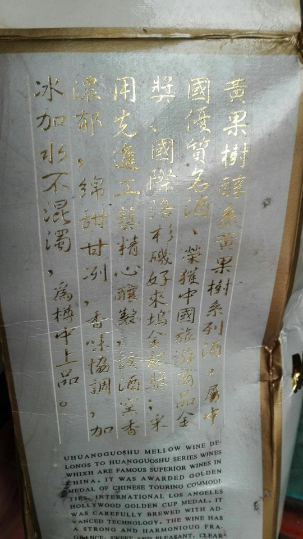 黃果樹醇系黃果樹系列酒，屬中
國優質名酒、榮獲中國旅游商品金
獎、國際洛杉磯好來塢金杯獎；采
用先進工藝精心釀製，該酒窖香
濃郁，綿甜甘冽，香味協調，加
冰加水不混濁，為樽中上品。
UHUANGGUOSHU MELLOW WINE DE-
LONGS TO HUANGGUOSHU SERIES WINES
WHIXH ARE FAMOUS SUPERIOR WINES IN
CHINA, IT WAS AWARDED GOLDEN
MEDAL OF CHINESE TOURING COMMODI-
TIES, INTERNATIONAL LOS ANGELES
HOLLYWOOD GOLDEN CUP MEDAL, IT
WAS CAREFULLY BREWED WITH AD-
VANCED TECHNOLOGY, THE WINE HAS
A STRONG AND HARMONIOUS FRA-
GRANCE, SWEET AND PLEASANT, CLEAR